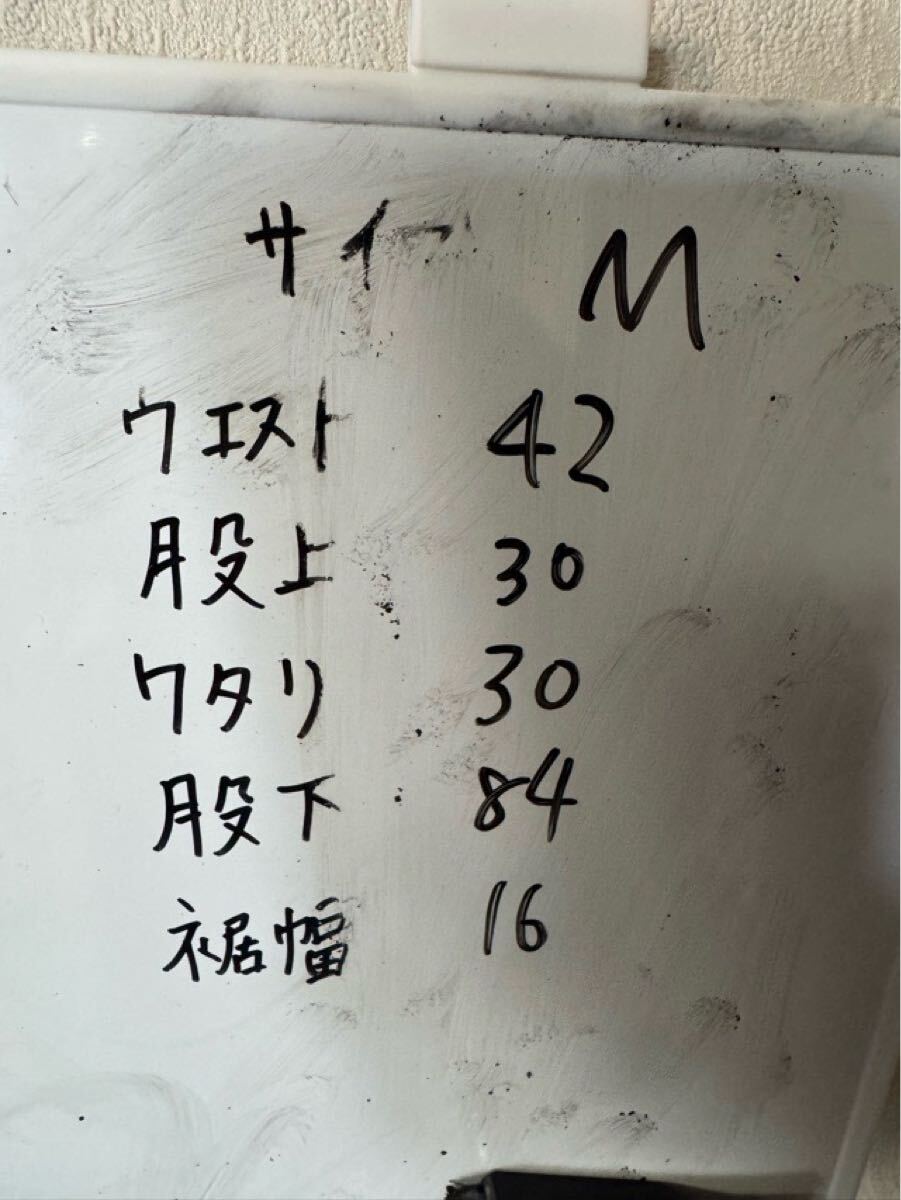 サイ M
ウエスト 42
股上 30
ワタリ 30
股下 84
裾幅 16